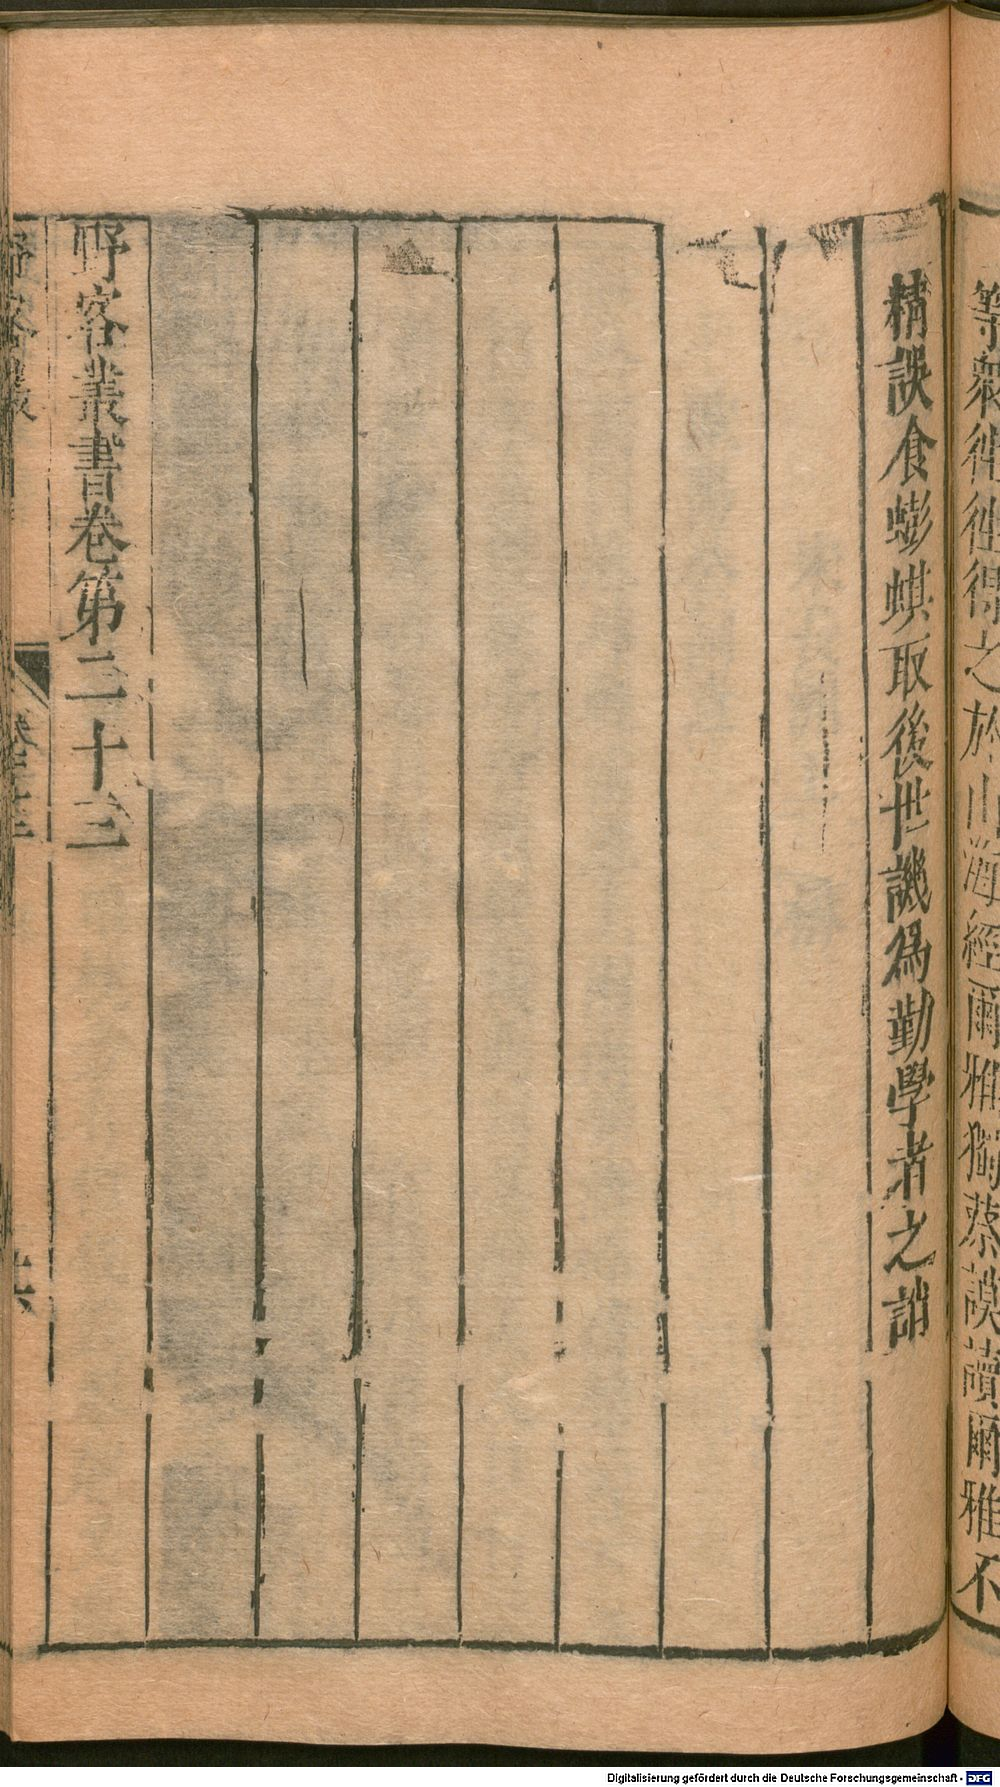 等衆徃徃得之於山海經爾雅獨蔡謨讀爾雅不
精誤食蟛蜞取後世譏爲勤學者之誚
野客叢書卷第二十三
野客叢書
卷二十三
十六
Digitalisierung gefördert durch die Deutsche Forschungsgemeinschaft - DFG